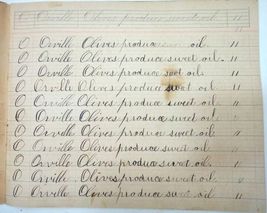 O Orville Olives produce sweet oil. "
O Orville Olives produce oil. "
O Orville Olives produce sweet oil. "
O Orville Olives produce sweet oil. "
O Orville Olives produce sweet oil "
O Orville Olives produce sweet oil "
O Orville Olives produce sweet oil. "
O Orville Olives produce sweet oil. "
O Orville Olives produce sweet oil "
O Orville Olives produce sweet oil. "
O Orville Olives produce sweet oil. "
O Orville. Olives produce sweet oil. "
O Orville Olives produce sweet oil "